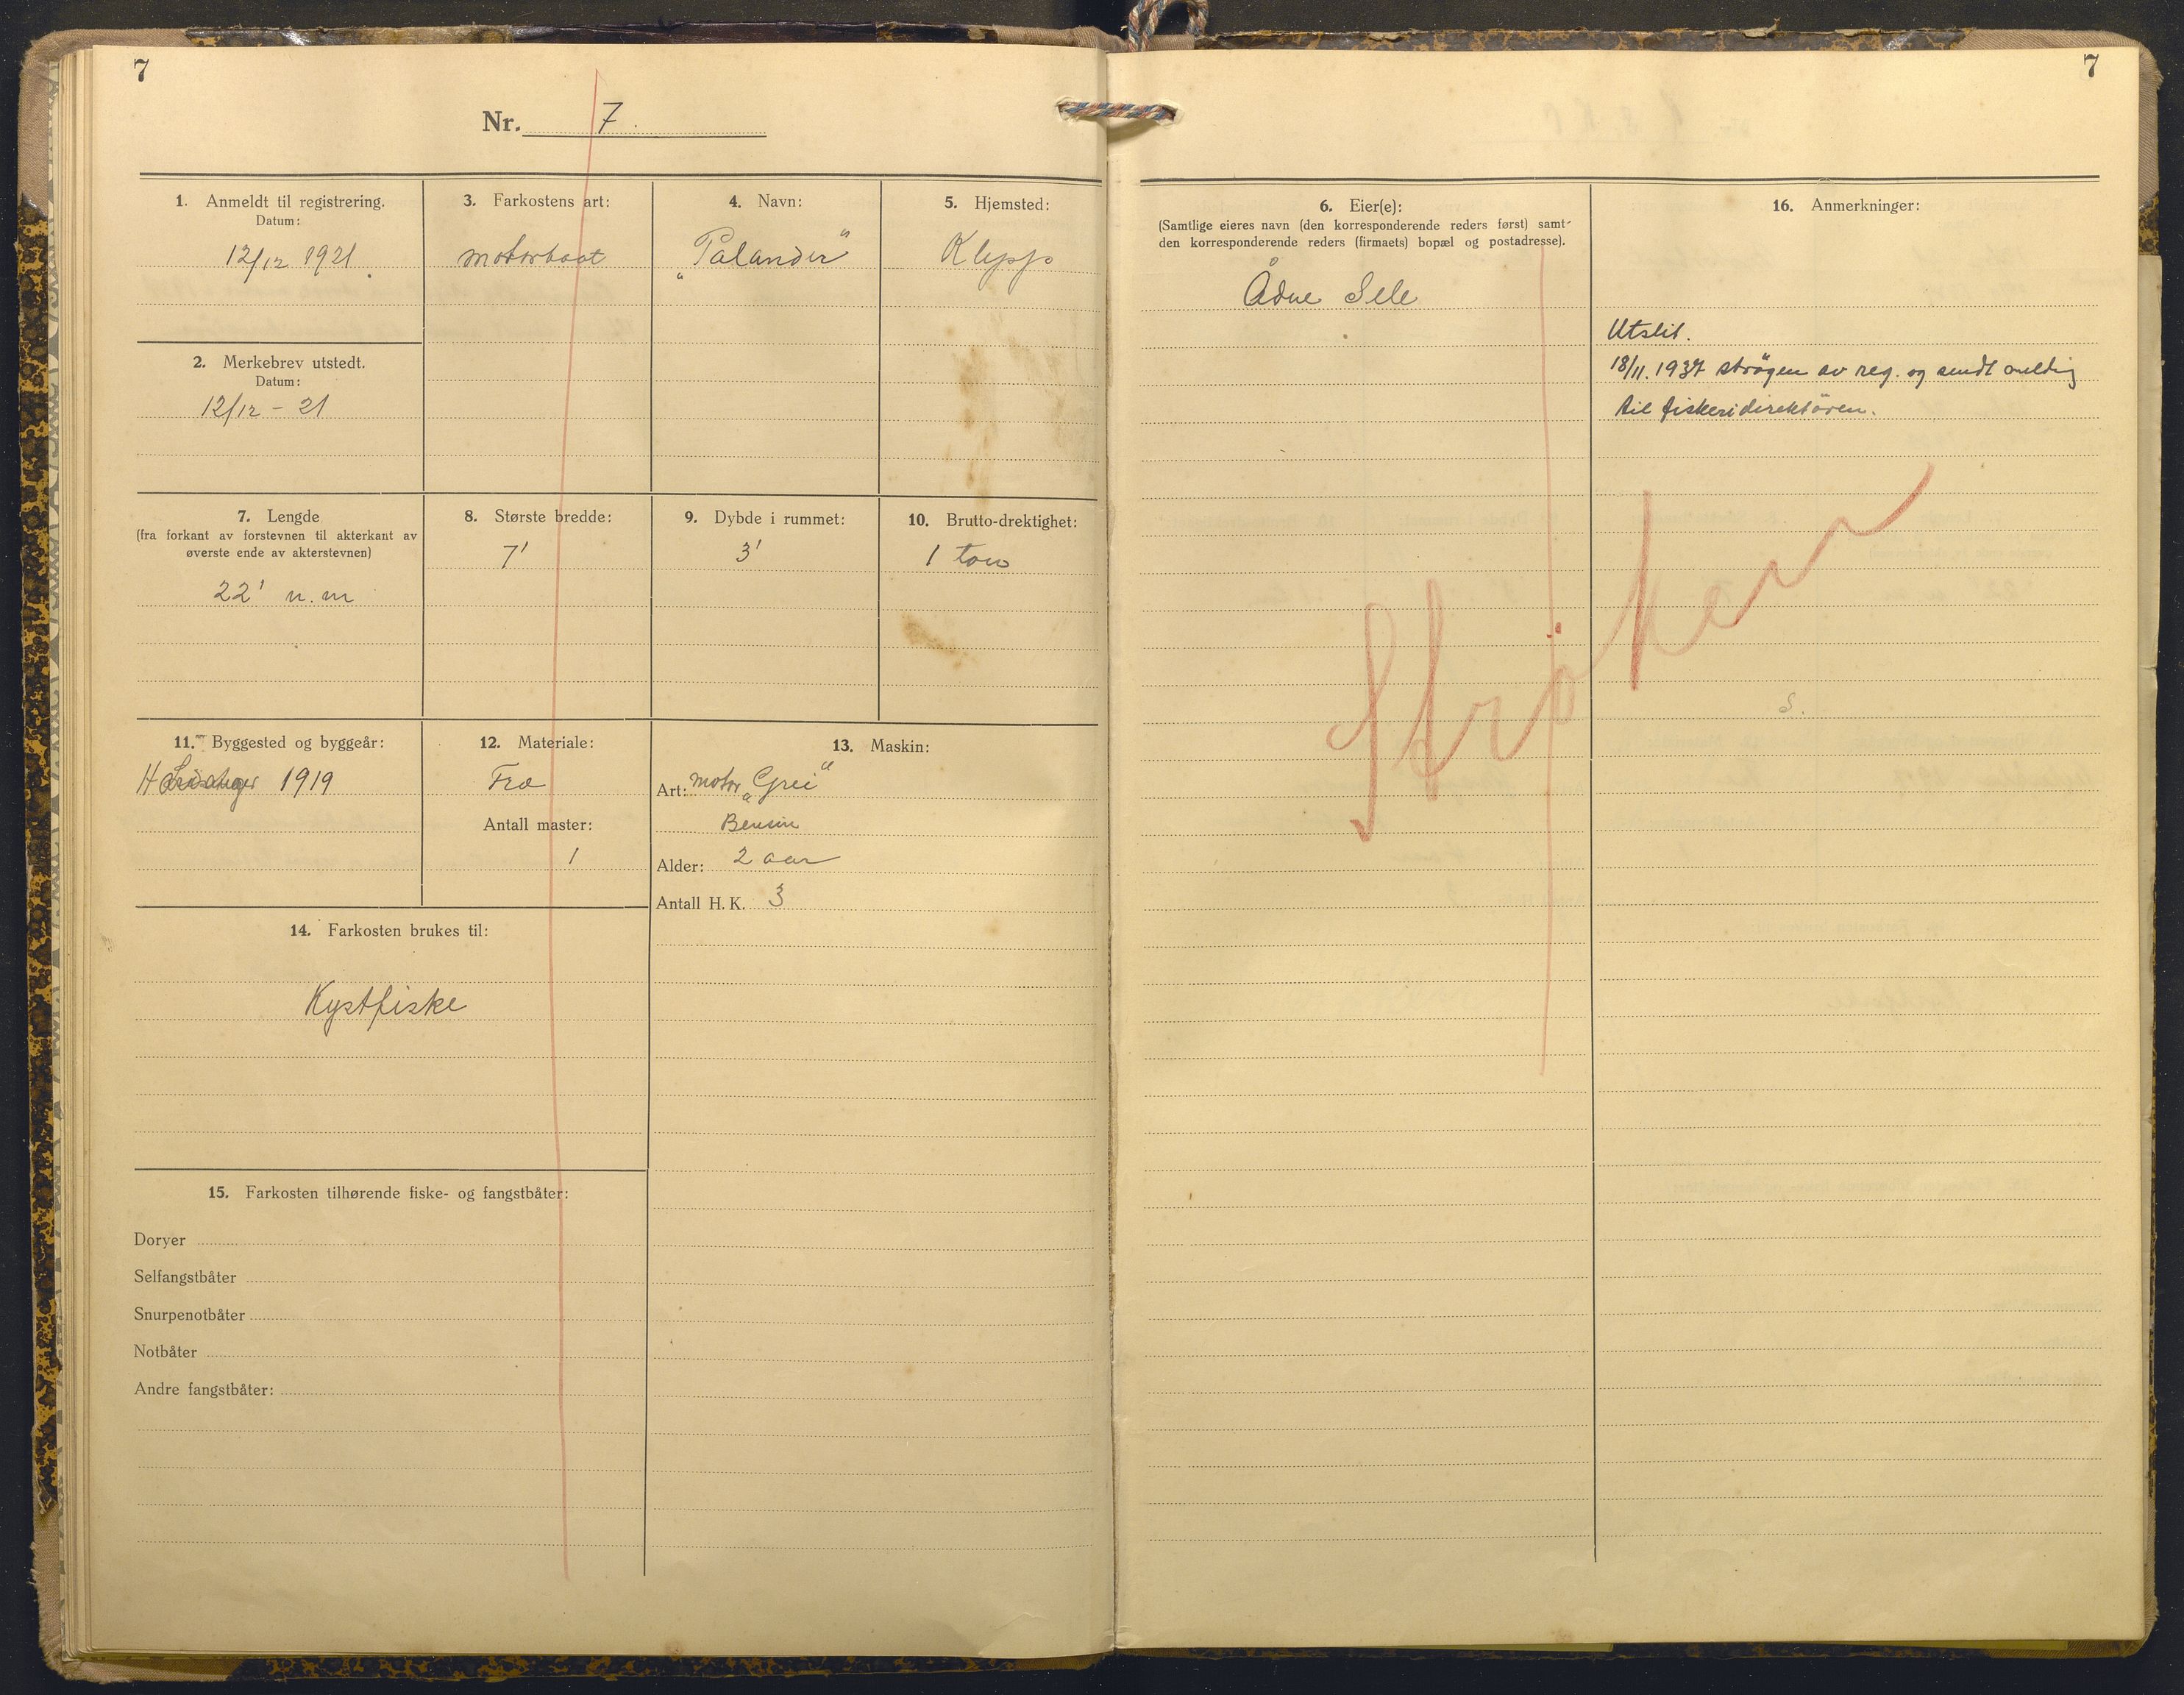 7
Nr. 7.
1. Anmeldt til registrering.
Datum:
12/12 1921.
2. Merkebrev utstedt.
Datum:
12/12 - 21
3. Farkostens art:
motorbaat
4. Navn:
„Palander“
5. Hjemsted:
Klepp
7. Lengde
(fra forkant av forstevnen til akterkant av
øverste ende av akterstevnen)
22' n.m
8. Største bredde:
7'
9. Dybde i rummet:
3'
10. Brutto-drektighet:
1 ton
11. Byggested og byggeår:
1919
12. Materiale:
Træ
Antall master:
1
13. Maskin:
Art: motor „Grei“
Bensin
Alder: 2 aar
Antall H.K. 3
14. Farkosten brukes til:
Kystfiske
15. Farkosten tilhørende fiske- og fangstbåter:
Doryer
Selfangstbåter
Snurpenotbåter
Notbåter
Andre fangstbåter:
7
6. Eier(e):
(Samtlige eieres navn (den korresponderende reders først) samt
den korresponderende reders (firmaets) bopæl og postadresse).
Ådne Sele
16. Anmerkninger:
Utslit.
18/11. 1937 strøgen av reg. og sendt melding
til fiskeridirektøren.
Strøken
S.